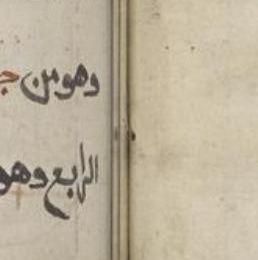 وهو من
الرابع وهو